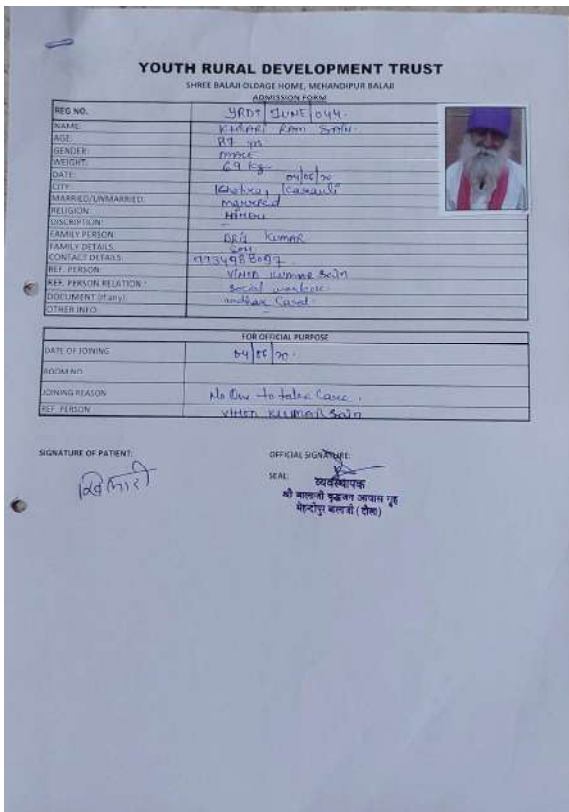 YOUTH RURAL DEVELOPMENT TRUST
SHREE BALAJI OLDAGE HOME, MEHANDIPUR BALAJI
ADMISSION FORM
REG NO. YRDT JUNE 044.
NAME: RAM
AGE: 87 yrs
GENDER: male
WEIGHT: 69 kg
DATE: 04/06/20
CITY: Karauli
MARRIED/UNMARRIED: married
RELIGION: HINDU
DISCRIPTION:
FAMILY PERSON KUMAR
FAMILY DETAILS: Son
CONTACT DETAILS:
REF. PERSON VINOD KUMAR Sain
REF. PERSON RELATION: Social
DOCUMENT (If any): Card.
OTHER INFO
FOR OFFICIAL PURPOSE
DATE OF JOINING 04/06/20.
ROOM NO.
JOINING REASON No One to take Care.
REF. PERSON VINOD KUMAR Sain
SIGNATURE OF PATIENT: OFFICIAL SIGNATURE:
SEAL:
व्यवस्थापक
श्री बालाजी वृद्धजन आवास गृह
मेहन्दीपुर बालाजी (दौसा)